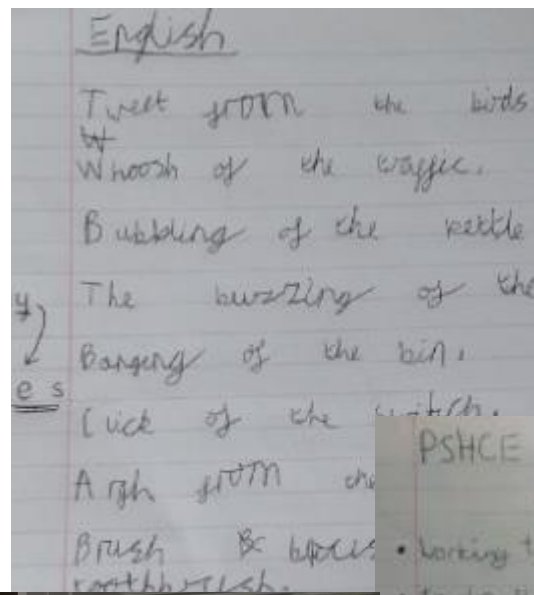 English
Tweet from the birds
W
Whoosh of the traffic.
Bubbling of the kettle
The buzzing of the
Banging of the bin.
Click of the switch.
Argh from the
Brush &
toothbrush.
y
es
PSHCE
• Working